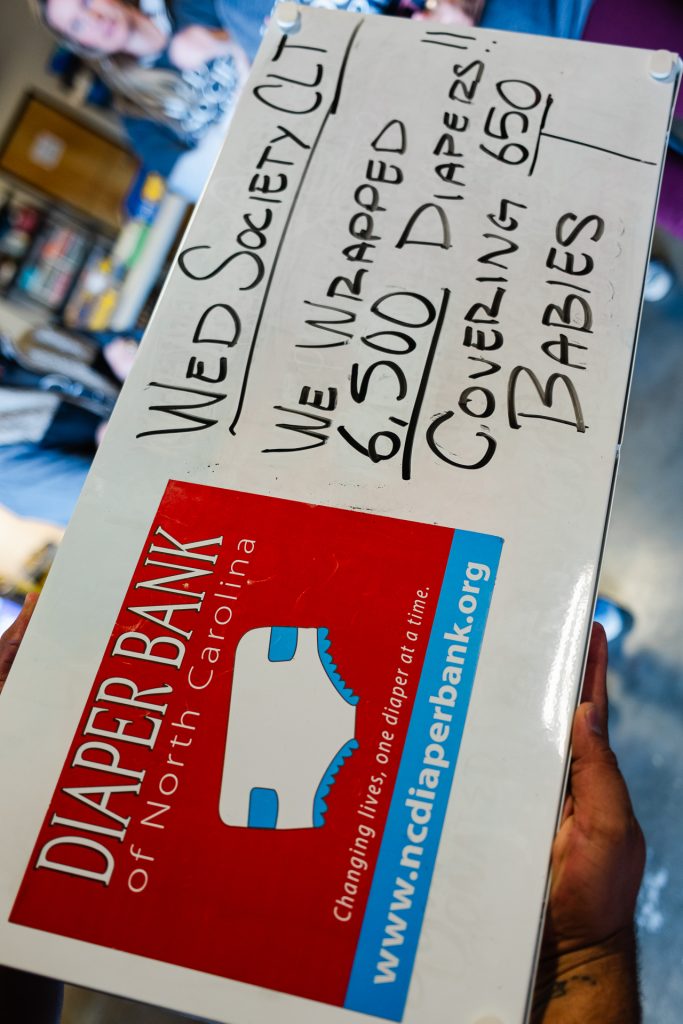 DIAPER BANK
of North Carolina
Changing lives, one diaper at a time.
www.ncdiaperbank.org
WED SOCIETY CLT
WE WRAPPED
6,500 DIAPERS!!
COVERING 650
BABIES